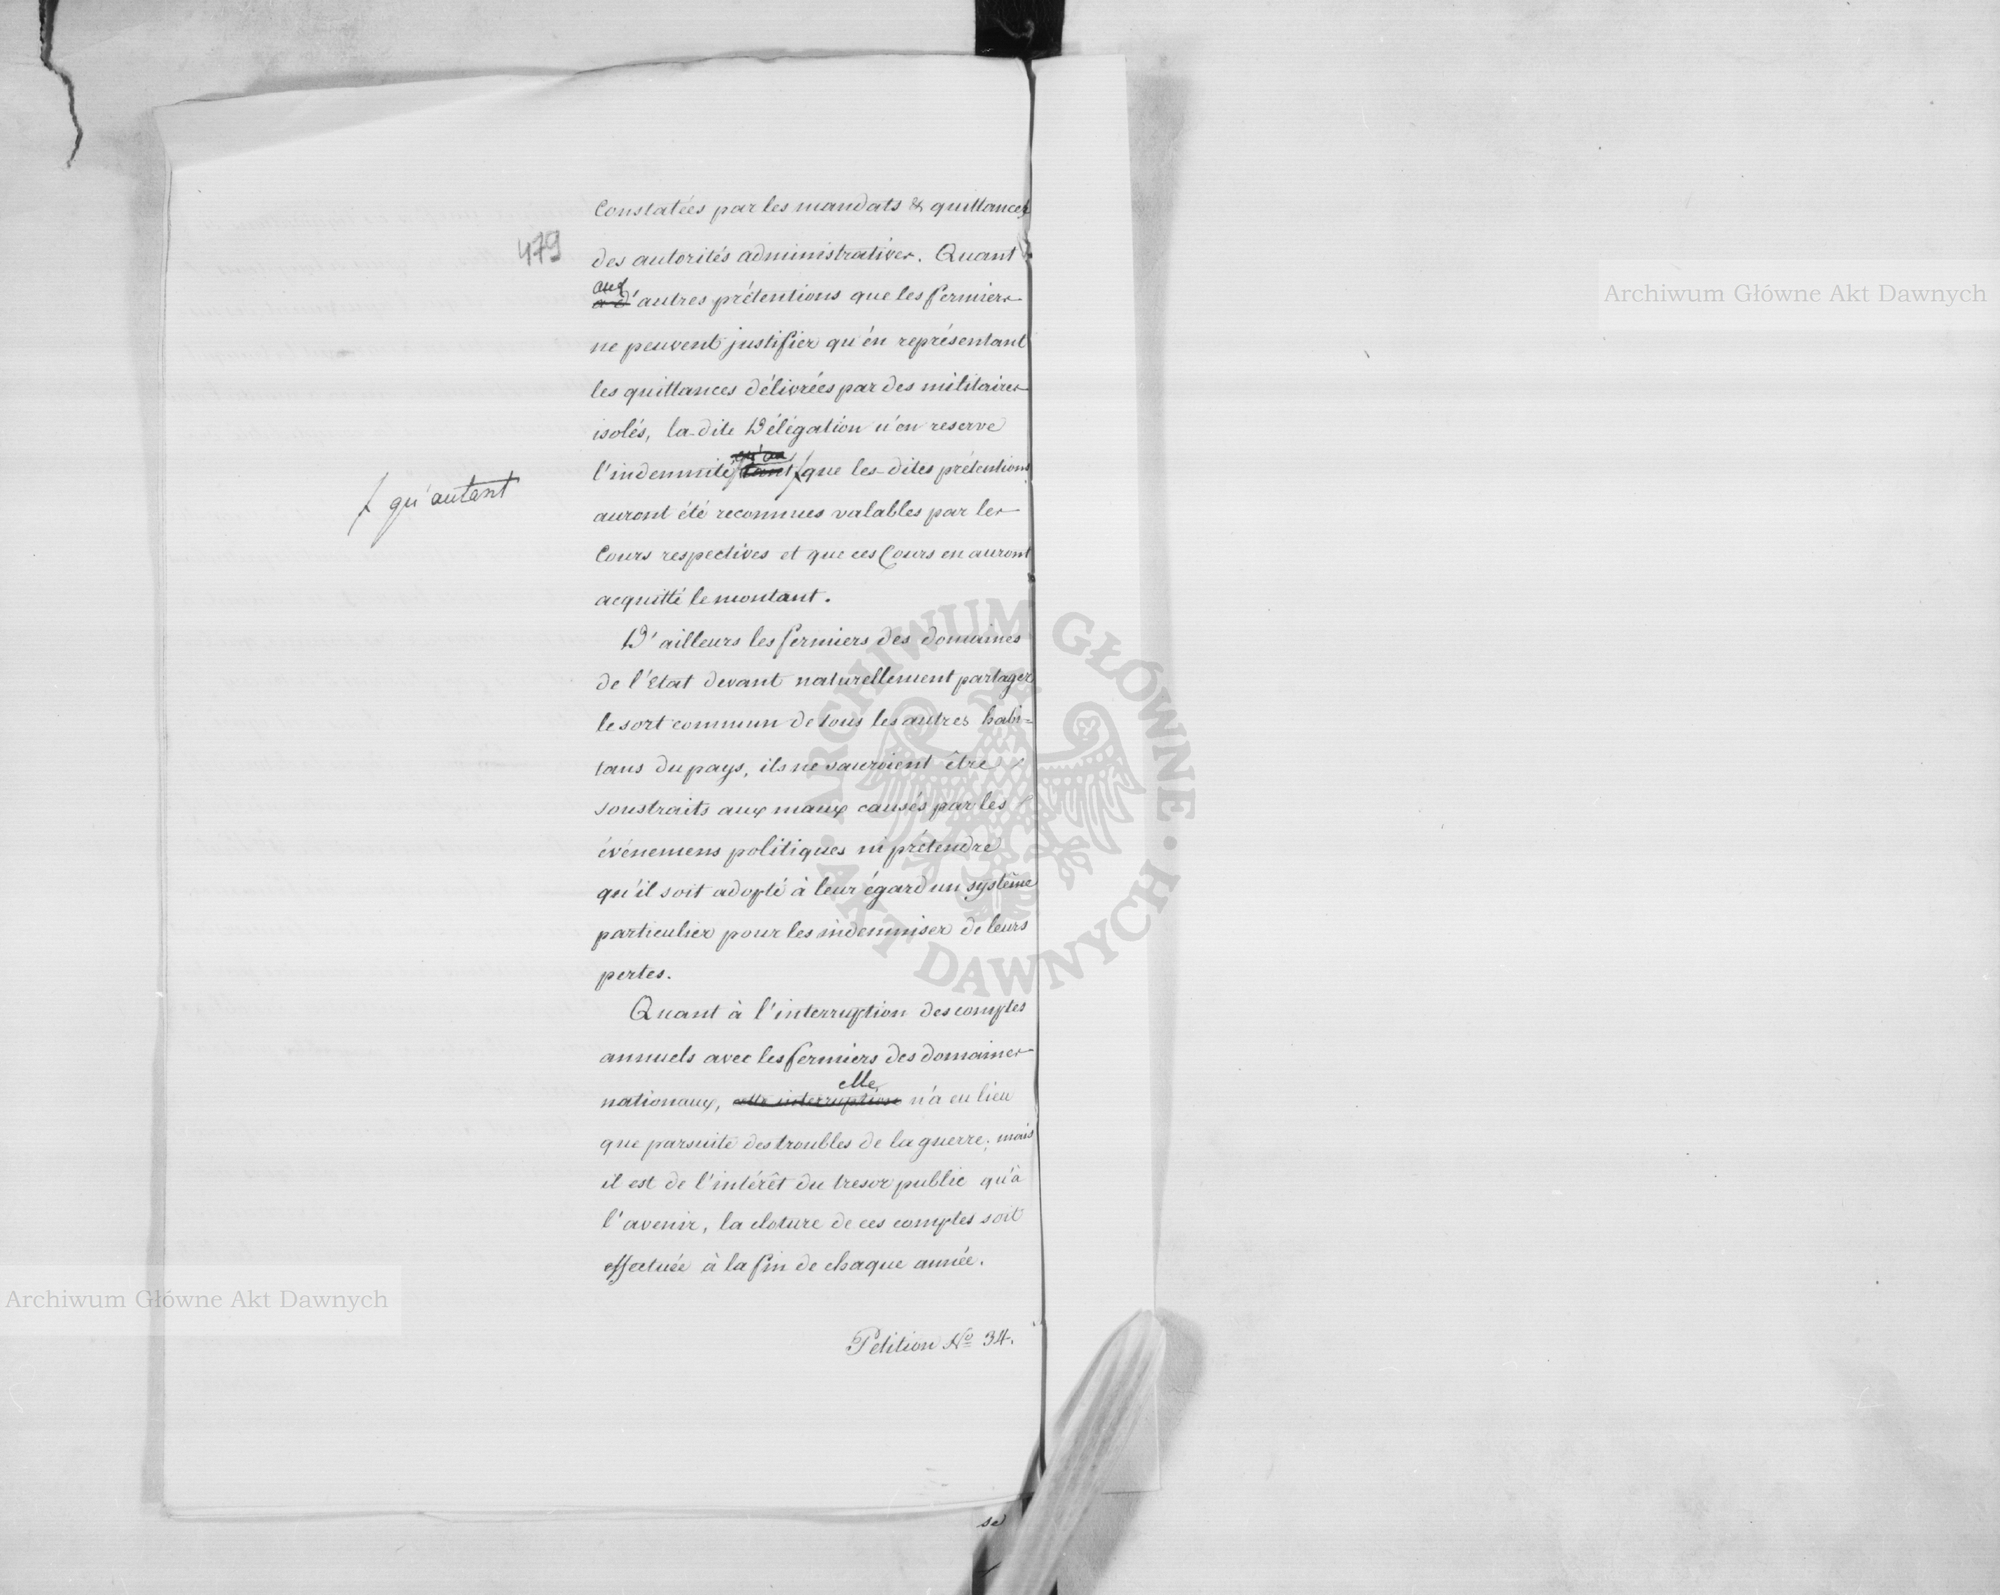 Constatées par les mandats & quittances
479
des autorités administratives. Quant
aux
a d'autres prétentions que les fermiers
ne peuvent justifier qu'en représentant
les quittances délivrées par des militaires
isolés, la-dite Délégation n'en reserve
qu'au
l'indemnité tant que les-dites prétentions
qu'autant
auront été reconnues valables par les
Cours respectives et que ces Cours en auront
acquitté le montant.
D'ailleurs les fermiers des domaines
de l'Etat devant naturellement partager
le sort commun de tous les autres habi=
tans du pays, ils ne sauroient être
soustraits aux maux causés par les
événemens politiques ni prétendre
qu'il soit adopté à leur égard un système
particulier pour les indemniser de leurs
pertes.
Quant à l'interruption des comptes
annuels avec les fermiers des domaines
elle
nationaux, cette interruption n'a eu lieu
que par suite des troubles de la guerre; mais
il est de l'intérêt du tresor public qu'à
l'avenir, la cloture de ces comptes soit
effectuée à la fin de chaque année.
Pétition No 34.
se
Archiwum Główne Akt Dawnych
Archiwum Główne Akt Dawnych
ARCHIWUM GŁÓWNE AKT DAWNYCH